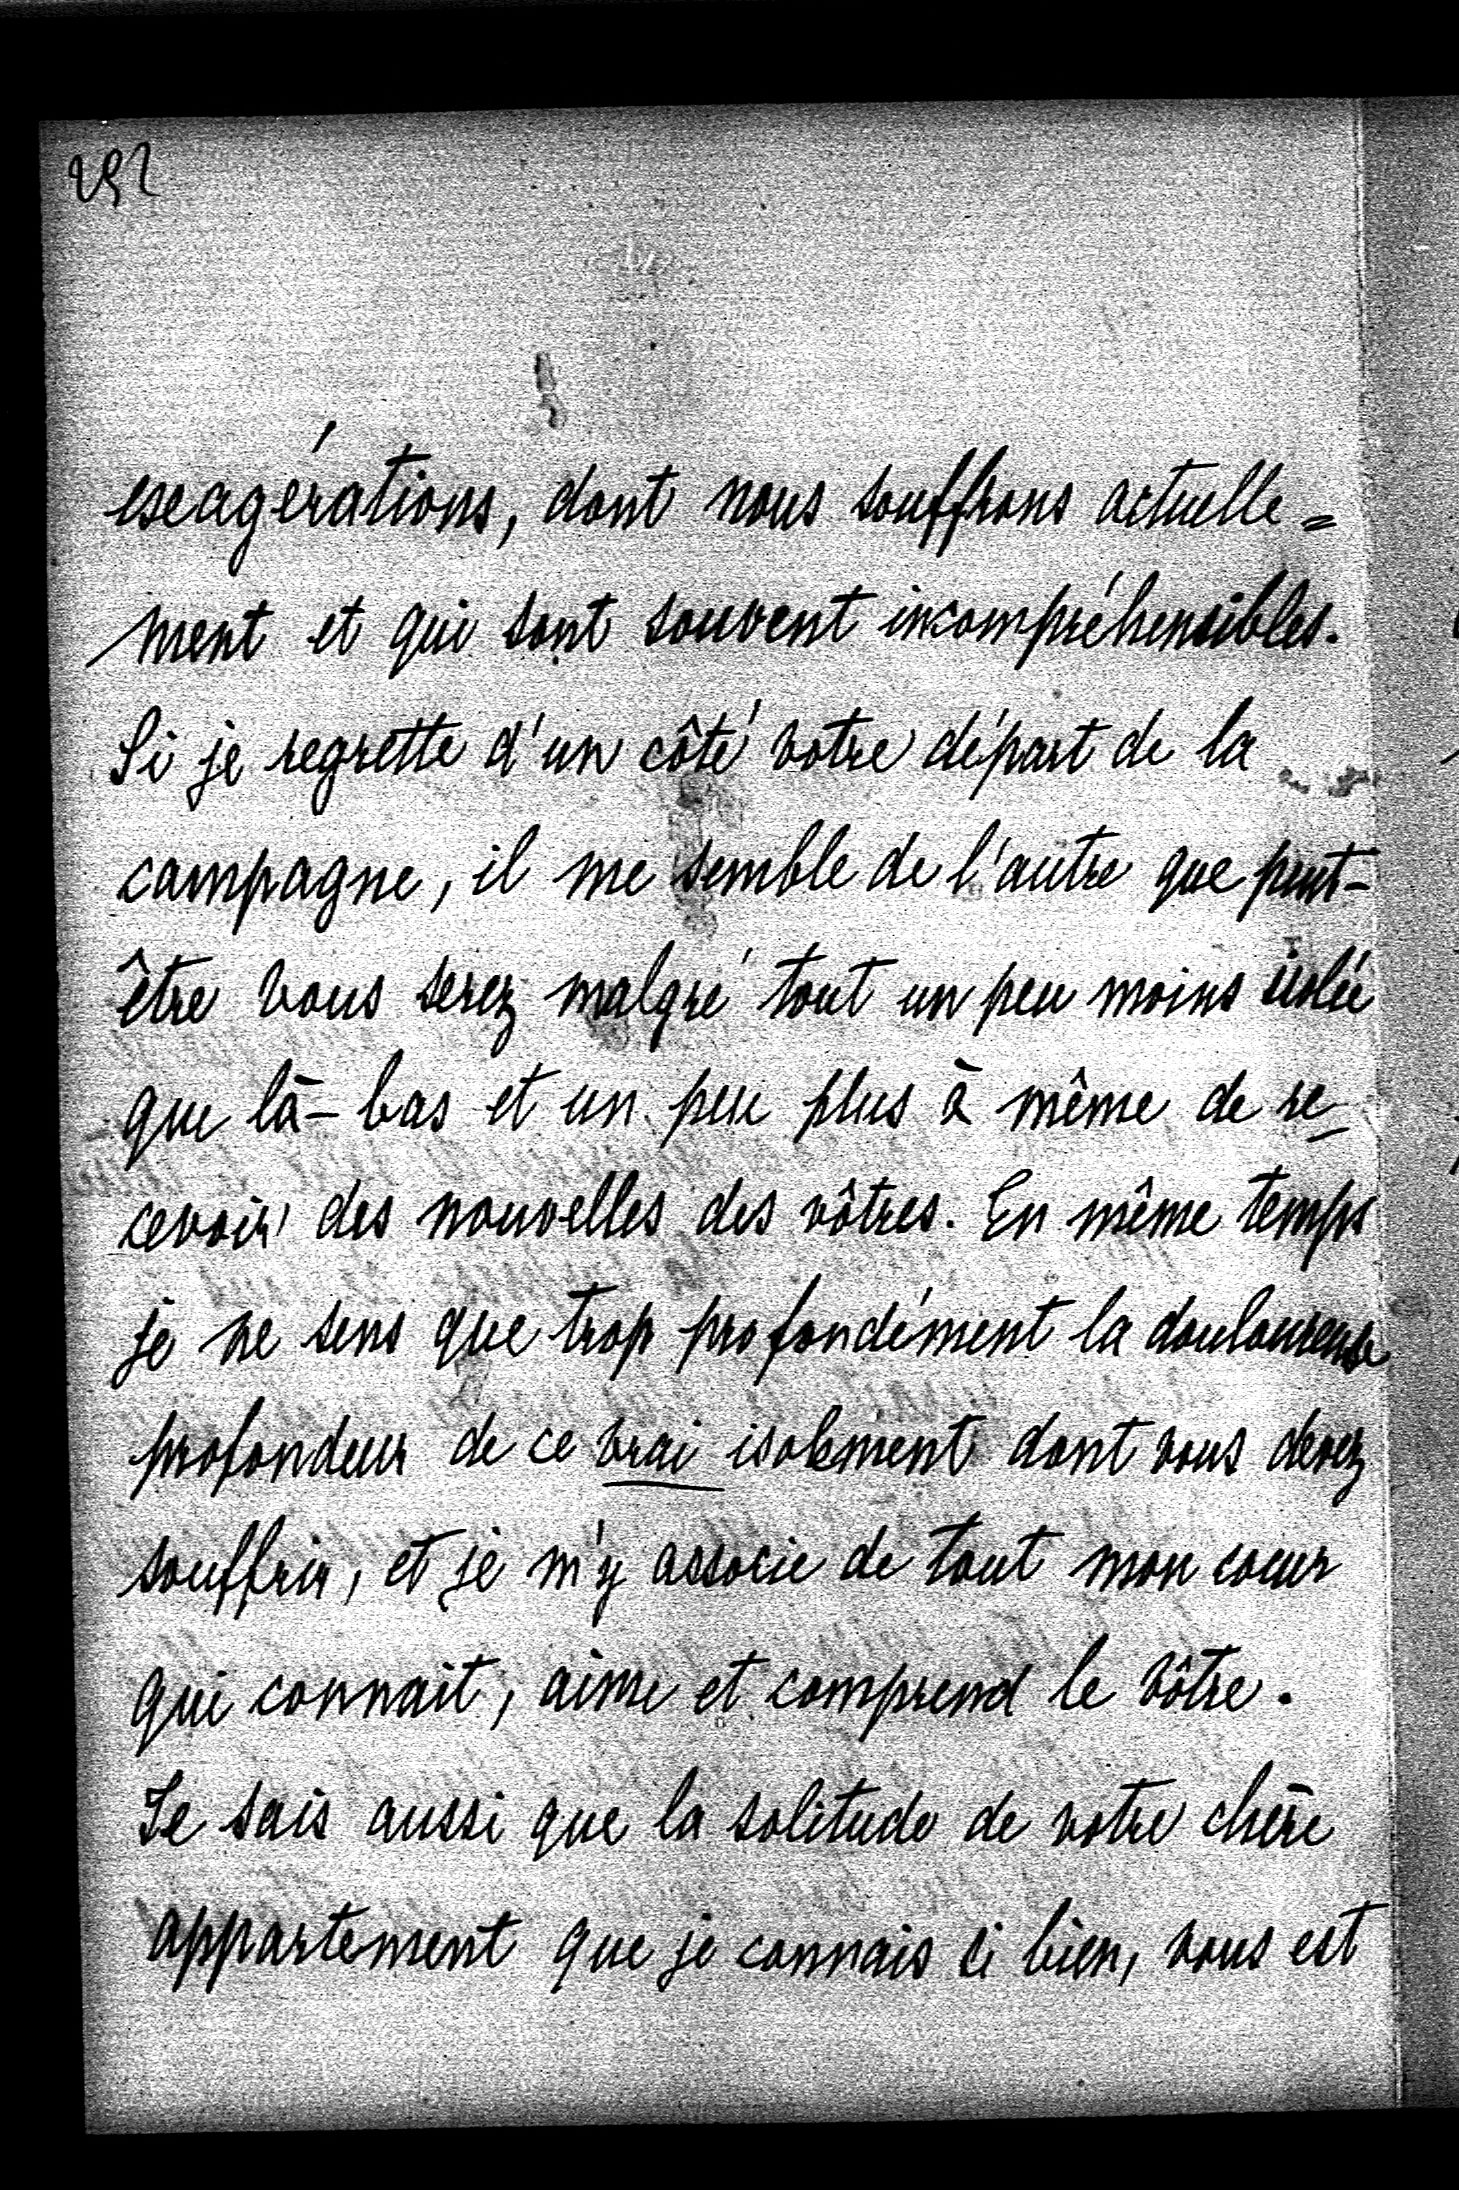 252
exagérations, dont nous souffrons actuelle=
ment et qui sont souvent incompréhensibles.
Si je regrette d'un côté votre départ de la
campagne, il me semble de l'autre que peut-
être vous serez malgré tout un peu moins isolée
que là-bas et un peu plus à même de re-
cevoir des nouvelles des vôtres. En même temps
je ne sens que trop profondément la douloureuse
profondeur de ce vrai isolement dont vous devez
souffrir, et je m'y associe de tout mon coeur
qui connait, aime et comprend le vôtre.
Je sais aussi que la solitude de votre chère
appartement que je connais si bien, vous est